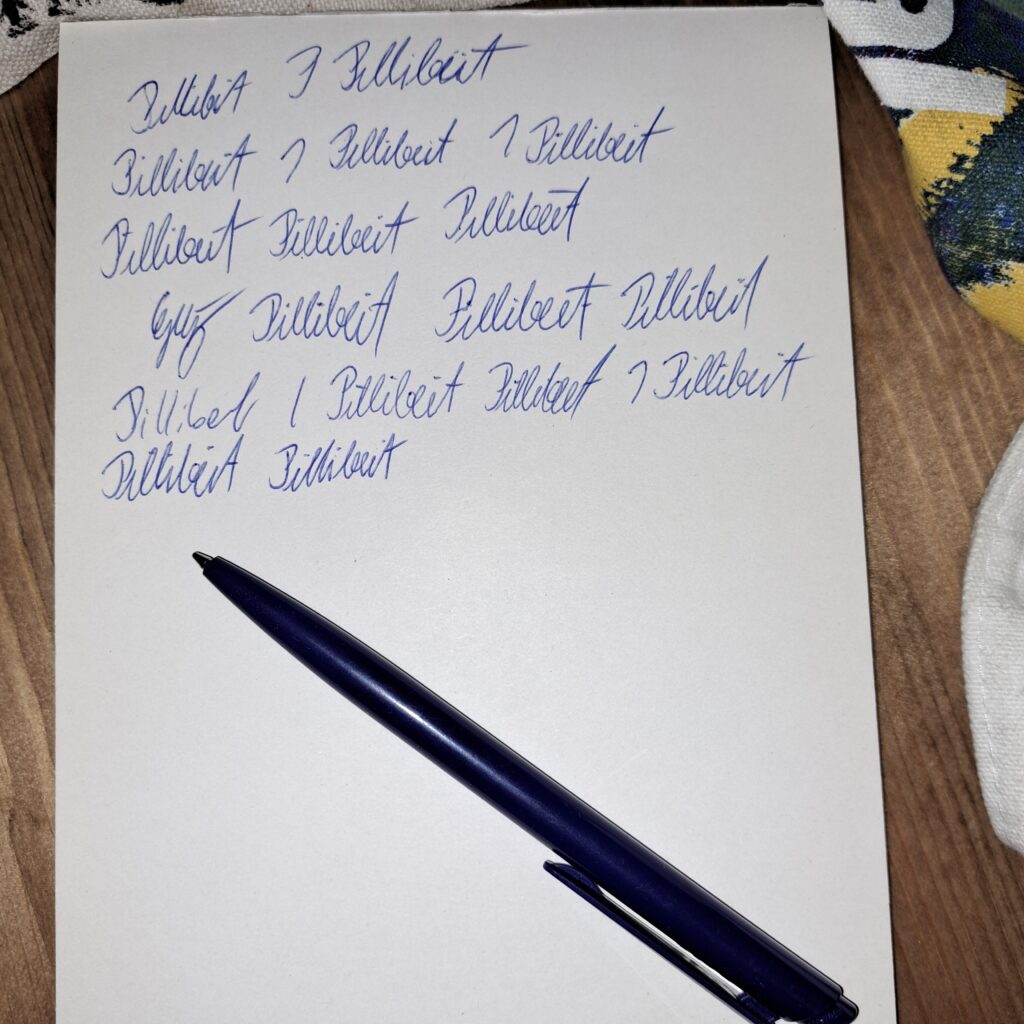 Pillibeit 7 Pillibeit
Pillibeit 1 Pillibeit 1 Pillibeit
Pillibeit Pillibeit Pillibeit
Pillibeit Pillibeit Pillibeit
Pillibeit Pillibeit 1 Pillibeit
Pillibeit Pillibeit